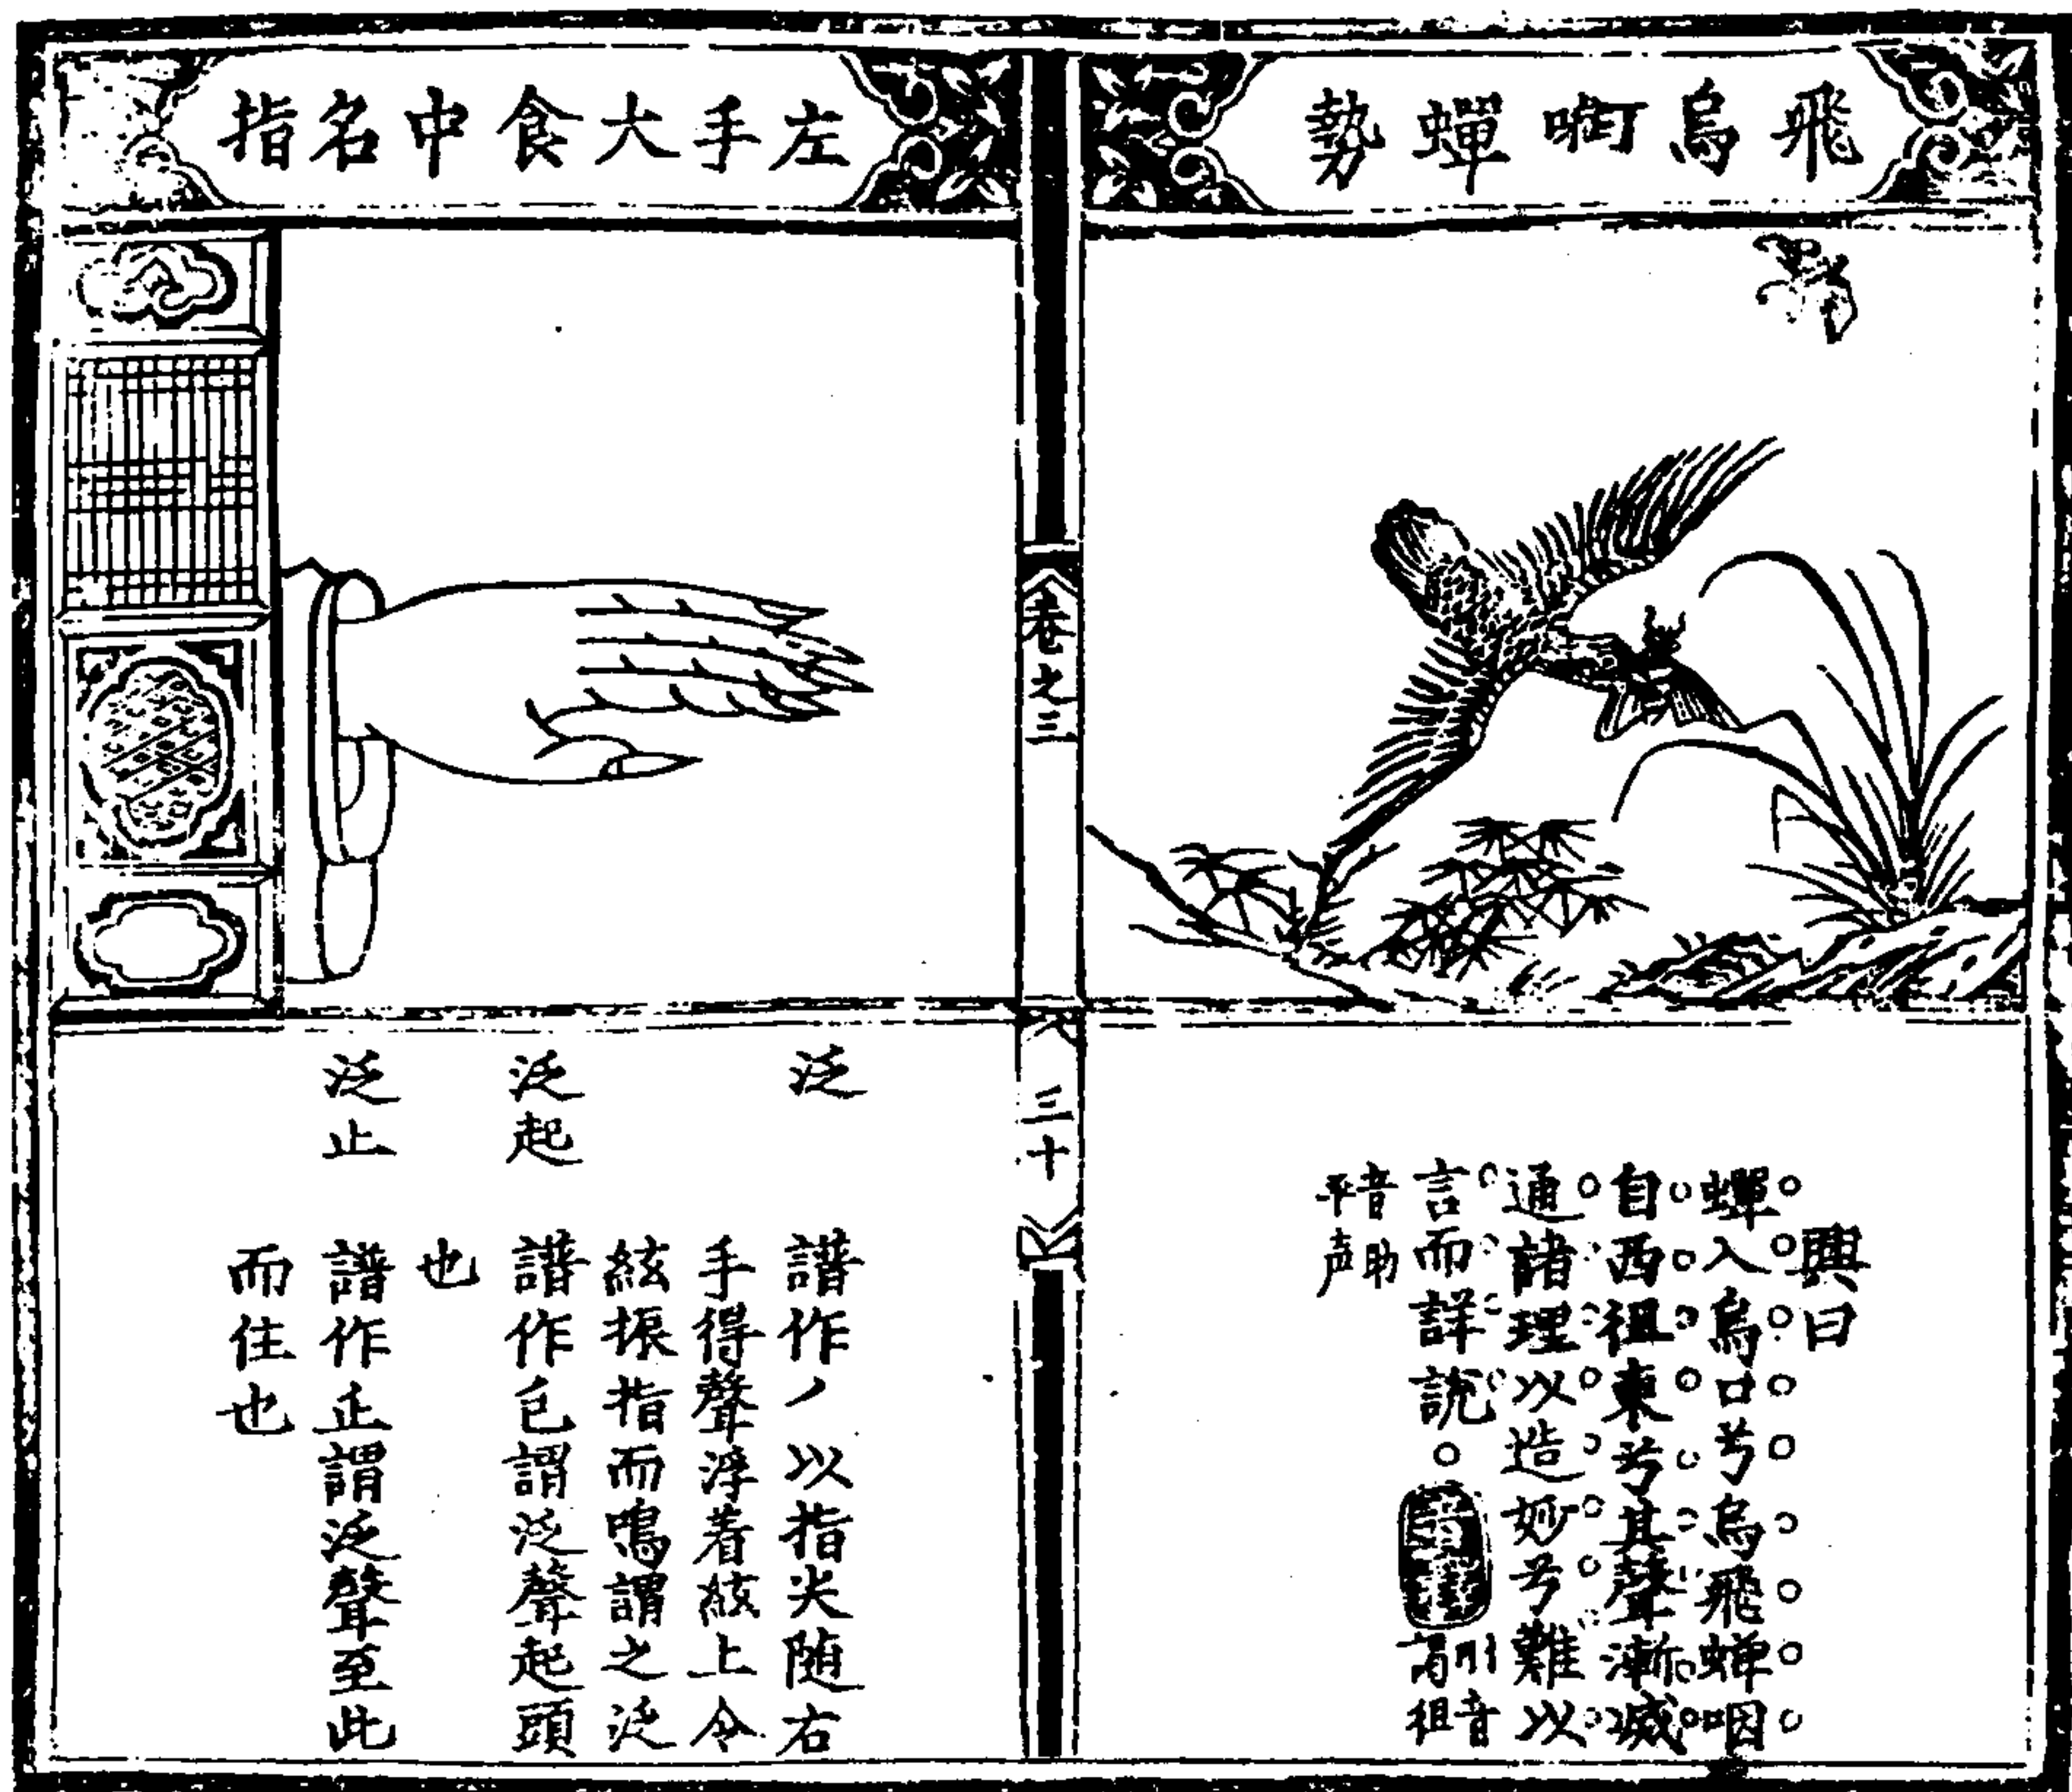 飛烏啣蟬勢
興曰
蟬入烏口兮烏飛蟬咽
自西徂東兮其聲漸滅
通諸理以造妙兮難以
言而詳說。
音助
平声
卷之三
三十
左手大食中名指
泛 譜作ノ以指尖随右
手得聲浮着絃上令
絃振指而鳴謂之泛
泛起 譜作謂泛聲起頭
也
泛止 譜作正謂泛聲至此
而住也